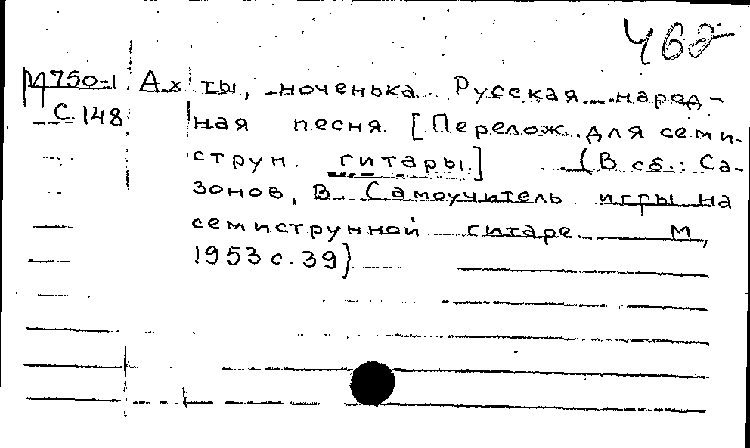 462
М750-1 Ах ты, ноченька Русская народ-
С 148 ная песня [Перелож. для семи-
струн. гитары.] (В сб.: Са-
зонов, В Самоучитель игры на
семиструнной гитаре М,
1953 с. 39)